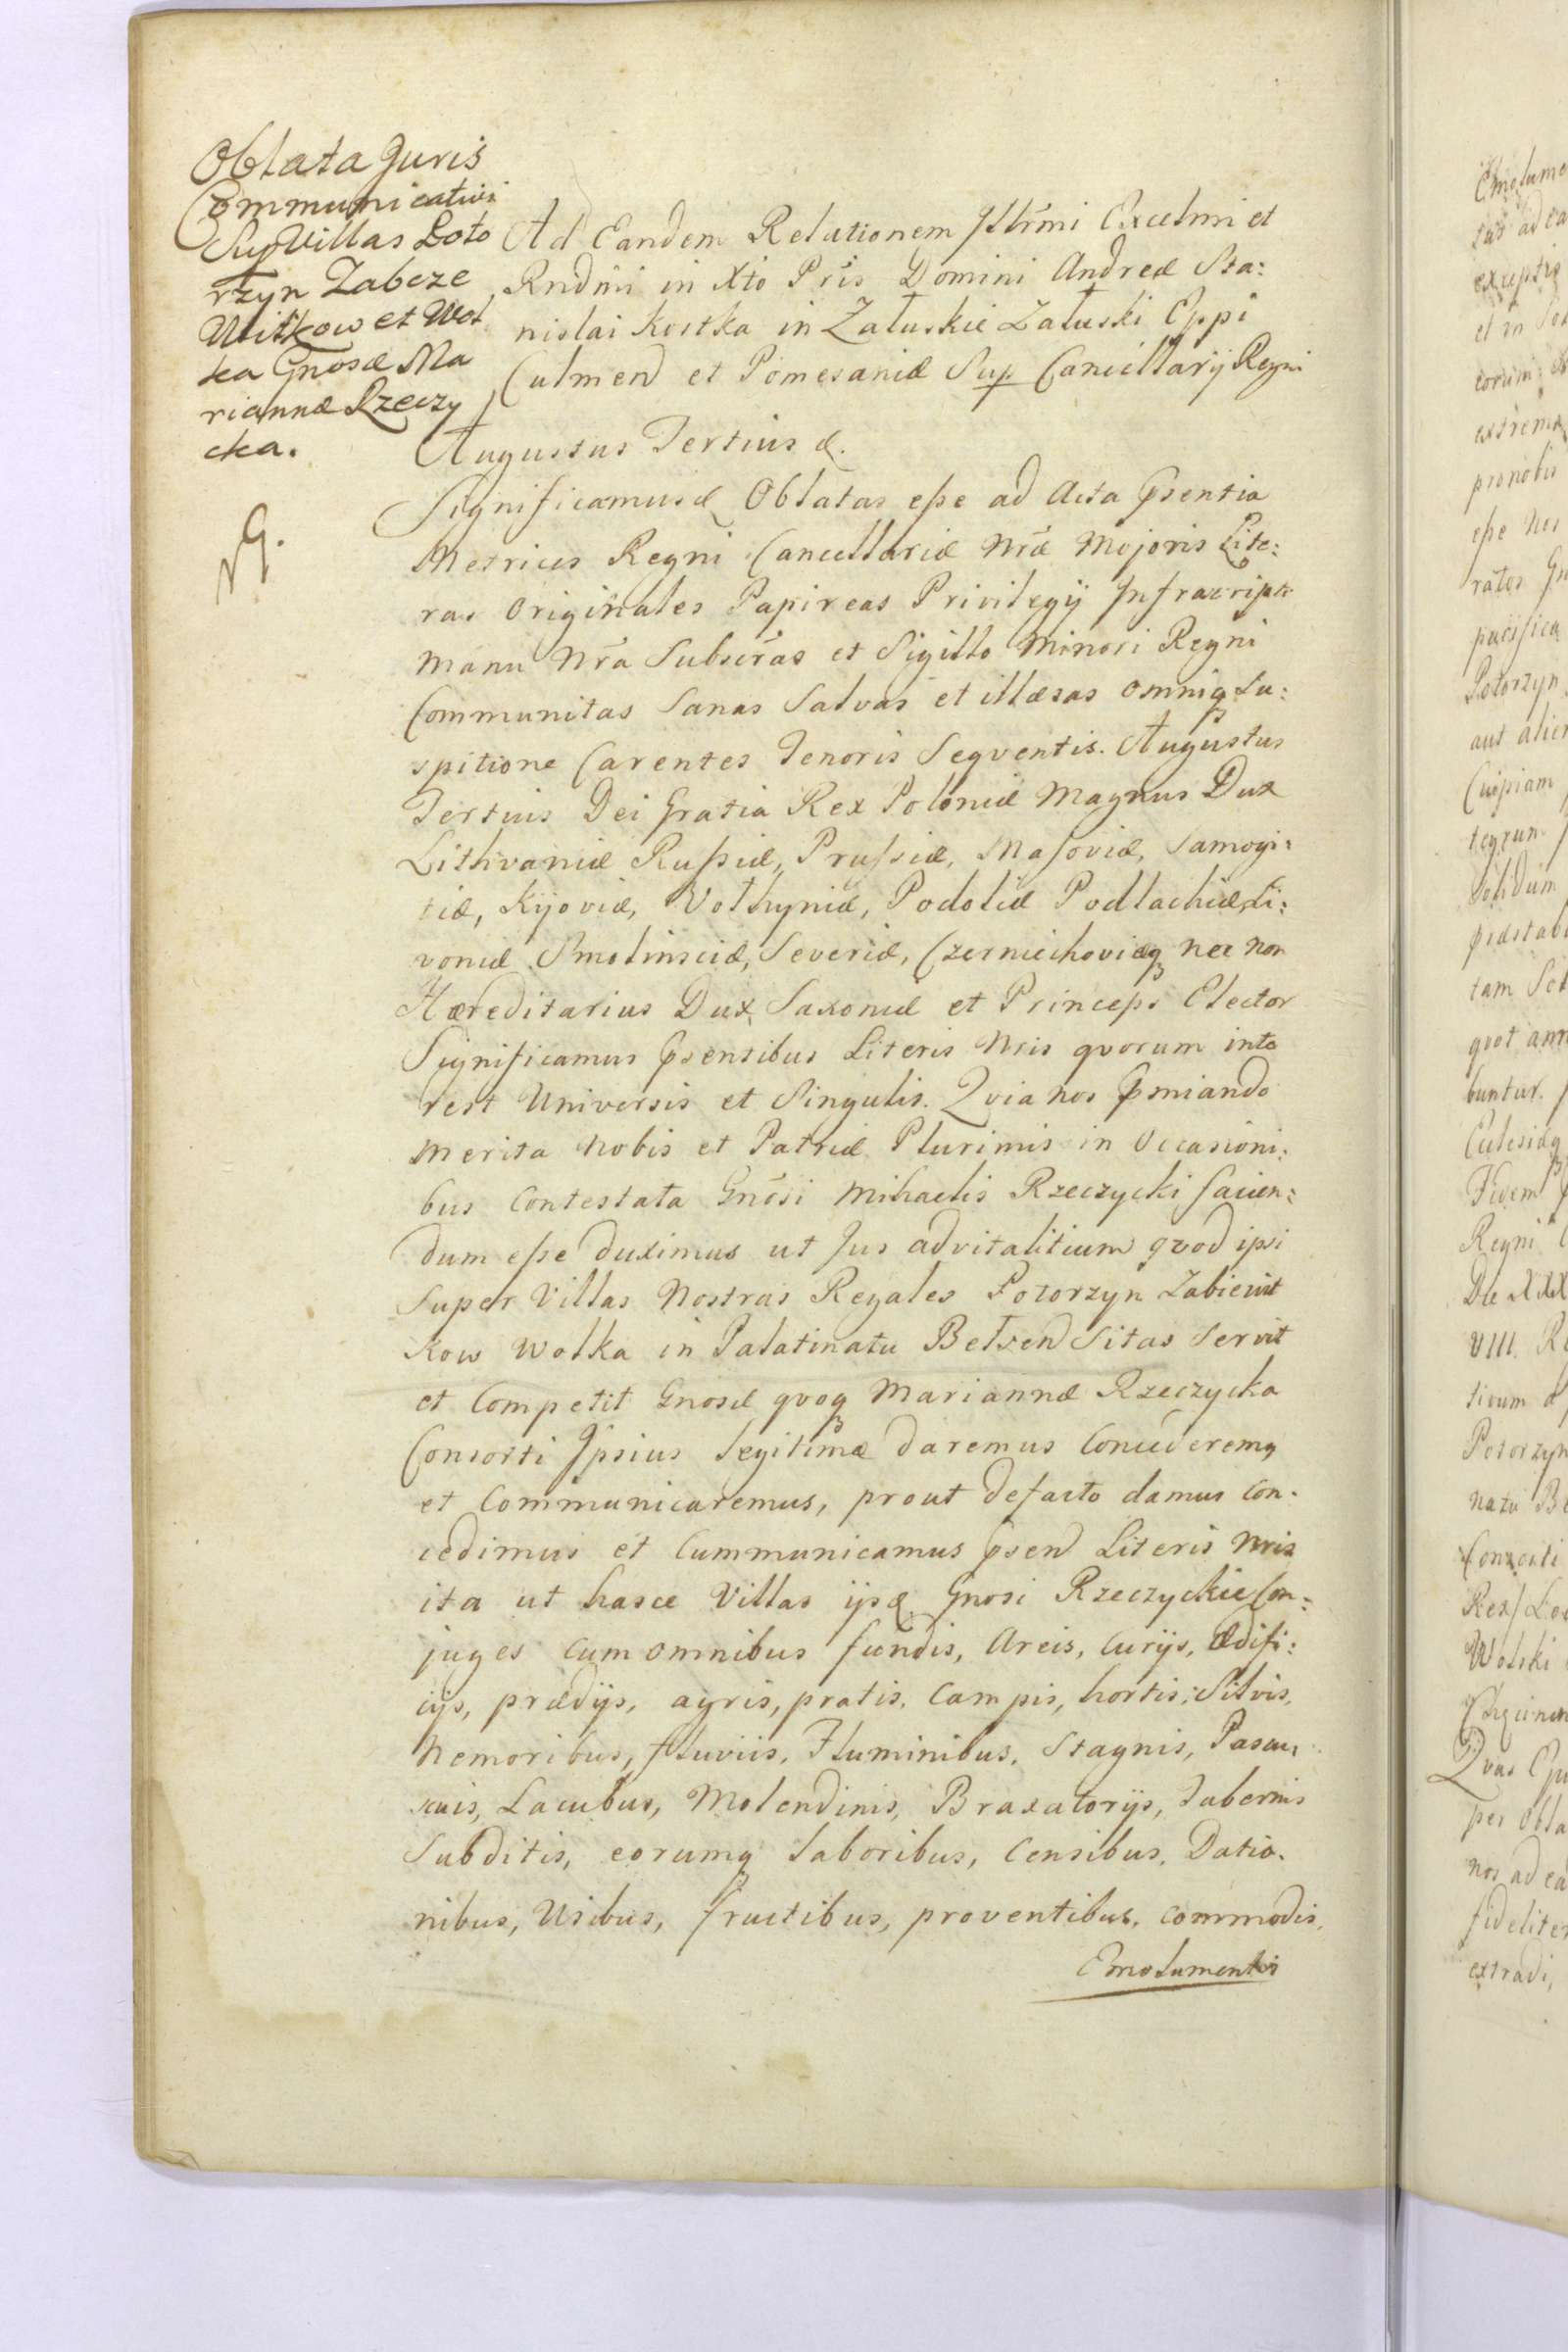 Oblata Juris
Communicativi
Sup Villas Loto
rzyn Zabcze
Witkow et Wol
ka Gnosæ Ma
riannæ Rzeczy
cka.
Ad Eandem Relationem Illrmi Excelmi et
Rndmi in Xto Pris Domini Andreæ Sta:
nislai Kostka in Załuskie Załuski Eppi
Culmen et Pomesaniæ Sup Cancellarij Regni
Augustus Tertius &.
Significamus & Oblatas eße ad Acta Psentia
Metrices Regni Cancellariæ Nræ Majoris Lite:
ras Originales Papireas Privilegij Infrascripti
manu Nra Subscras et Sigillo Minori Regni
Communitas Sanas Salvas et illæsas omniq Su:
spitione Carentes Tenoris Seqventis. Augustus
Tertius Dei Gratia Rex Poloniæ Magnus Dux
Lithvaniæ Rußiæ, Prußiæ, Masoviæ, Samogi:
tiæ, Kijoviæ, Vołhyniæ, Podoliæ Podlachiæ, Li:
voniæ Smolinsciæ, Severiæ, Czerniechoviæq nec non
Hæreditarius Dux Saxoniæ et Princeps Elector
Significamus Psentibus Literis Nris qvorum inte
rest Universis et Singulis. Qvia nos Pmiando
Merita Nobis et Patriæ Plurimis in Occasioni:
bus Contestata Gnosi Mihaelis Rzeczycki facien:
dum eße duximus ut Jus advitalitium qvod ipsi
Super Villas Nostras Regales Potorzyn Zabie Wit
kow Wolka in Palatinatu Belzen Sitas Servit
et Competit Gnosæ qvoq Mariannæ Rzeczycka
Consorti Ipsius Legitimæ daremus Concederemq
et Communicaremus, prout defacto damus Con:
cedimus et Cummunicamus Psen Literis Nris
ita ut hasce Villas ijdem Gnosi Rzeczyckie Con:
juges cum omnibus fundis, Areis, Curijs, Ædifi:
cijs, prædijs, agris, pratis, Campis, hortis, Silvis,
Nemoribus, fluviis, Fluminibus, Stagnis, Pascu,
scuis, Lacubus, Molendinis, Braxatorijs, Tabernis
Subditis, eorumq Laboribus, Censibus, Datio.
nibus, Usibus, fructibus, proventibus, commodis,
Emolumentis